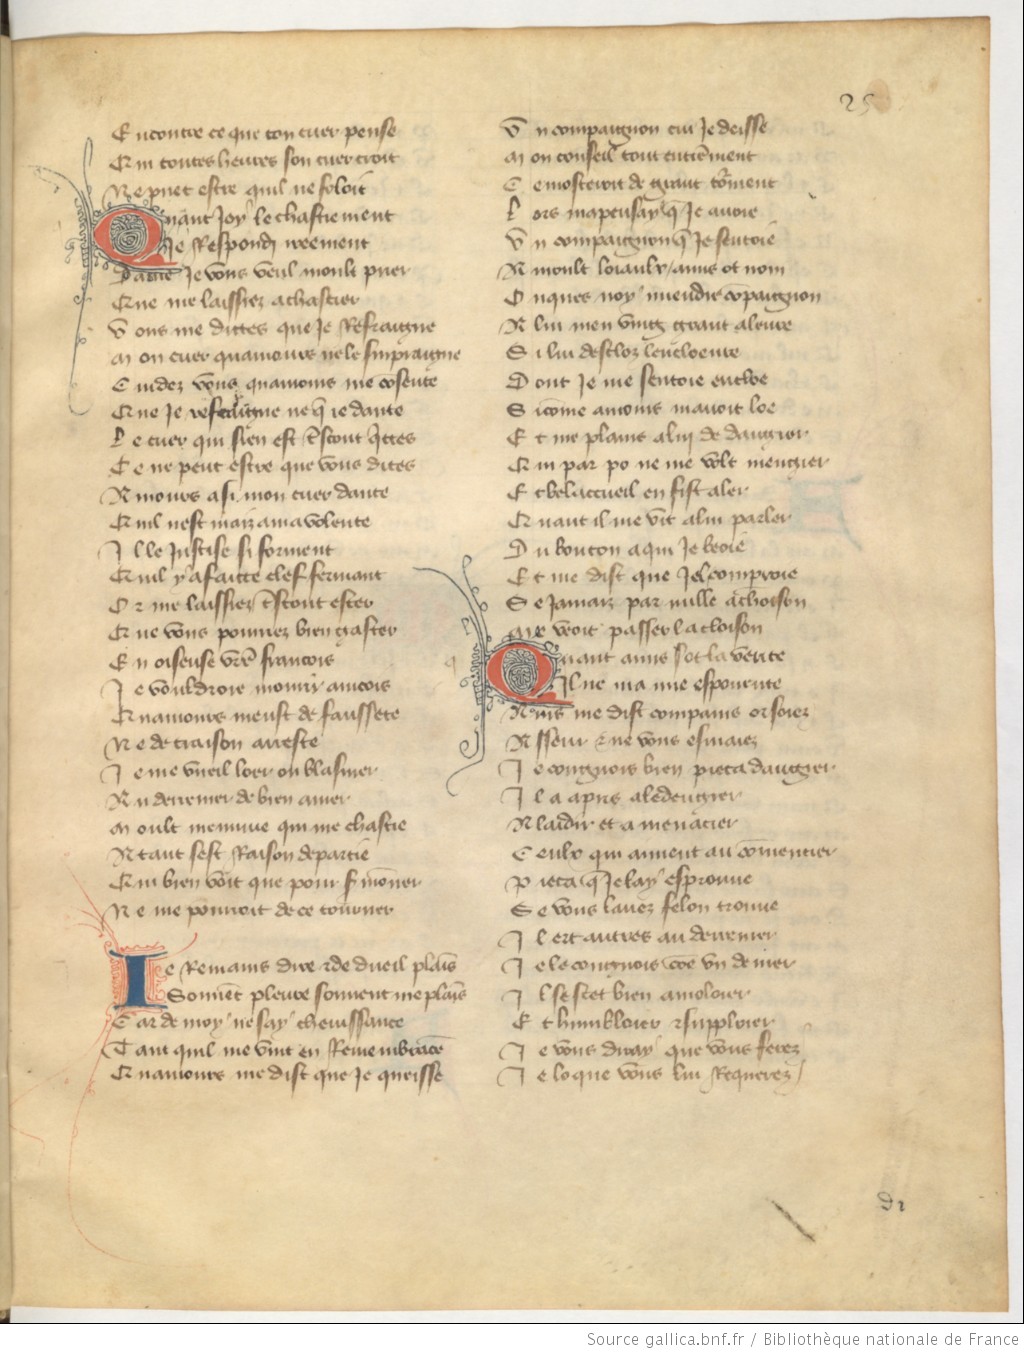 25
E ncontre ce que ton cuer pense
Q ui toutes heures son cuer croit
N e puet estre quil ne foloit
Quant Joy le chastiement
Je Respondi ireement
Dame Je vous veul moult prier
Q ue me laissiez a chastier
V ous me dittes que Je Refraigne
M on cuer quamours ne le sourpraigne
C uidez vous quamours me cōsente
Q ue Je ne q̄ ie dante
L e cuer qui sien est t͛stout q͛ttes
C e ne peut estre que vous dites
A mours a si mon cuer dante
Q uil nest maiz a ma volente
I l le Justise si forment
Q uil y a faicte clef fermant
O r me laissiez t͛stout ester
Q ue vous pourriez bien gaster
E n oiseuse vr̄e francois
J e vouldroie mourir aincois
Q uamours meust de faussete
N e de traison arreste
J e me vueil loer ou blasmer
A u derrenier de bien amer
M oult mennuie qui me chastie
A tant sest Raison departie
Q ui bien voit que pour s͛moner
N e me pourroit de ce tourner
Ie Remains dire ⁊ de dueil plais
Souuēt pleure souuent me plais
C ar de moy ne say cheuissance
T ant quil me vint en Remembrāce
Q uamours me dist que Je queisse
V n compaignon cui Je deisse
M on conseil tout entierement
C e mosteroit de grant to͛ment
L ors mapensay q̄ Je auoie
V n compaignon q̄ Je sentoie
A moult loiaulx / amis ot nom
O nques noy miendre cōpaignon
A lui men ving grant aleure
S i lui desclox lencloeure
D ont Je me sentoie encloe
S icōme amours mauoit loe
E t me plains a lui de dangier
Q ui par po ne me volt mengier
E t belaccueil en fist aler
Q uant il me vit a lui parler
D u bouton a qui Je beoie
E t me dist que Jel comproie
S e Jamaiz par nulle achoison
Me veoit passer la cloison
Quant amis sot la verite
Il ne ma mie espouente
Ains me dist compains or soiez
A sseur ⁊ ne vous esmaiez
J e congnois bien pieca dangier
I l a apris a ledengier
A laidir et a menacier
C eulx qui aiment au cōmencier
P ieca q̄ Je lay esprouue
S e vous lauez felon trouue
I l ert autres au derrenier
J e le congnois cōe vn denier
I l se scet bien amoloier
E t humiloier ⁊ supploier
J e vous diray que vous ferez
J e lo que vous lui Requerez
Source gallica.bnf.fr / Bibliothèque nationale de France